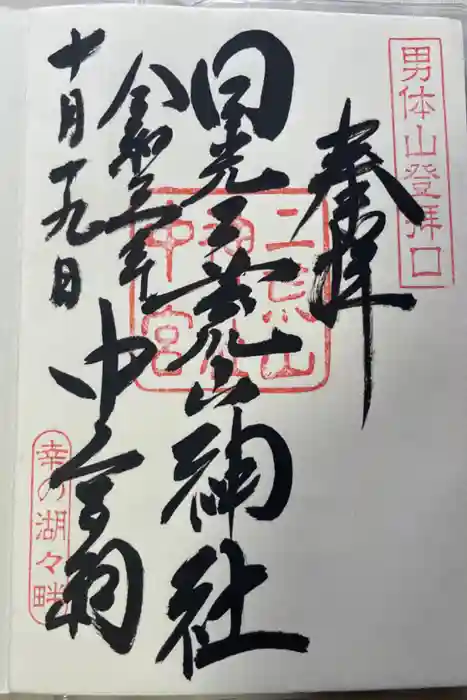 男体山登拝口
奉拝
日光二荒山神社
二荒山神社中宮
令和三年
中宮祠
十月十九日
幸の湖々畔